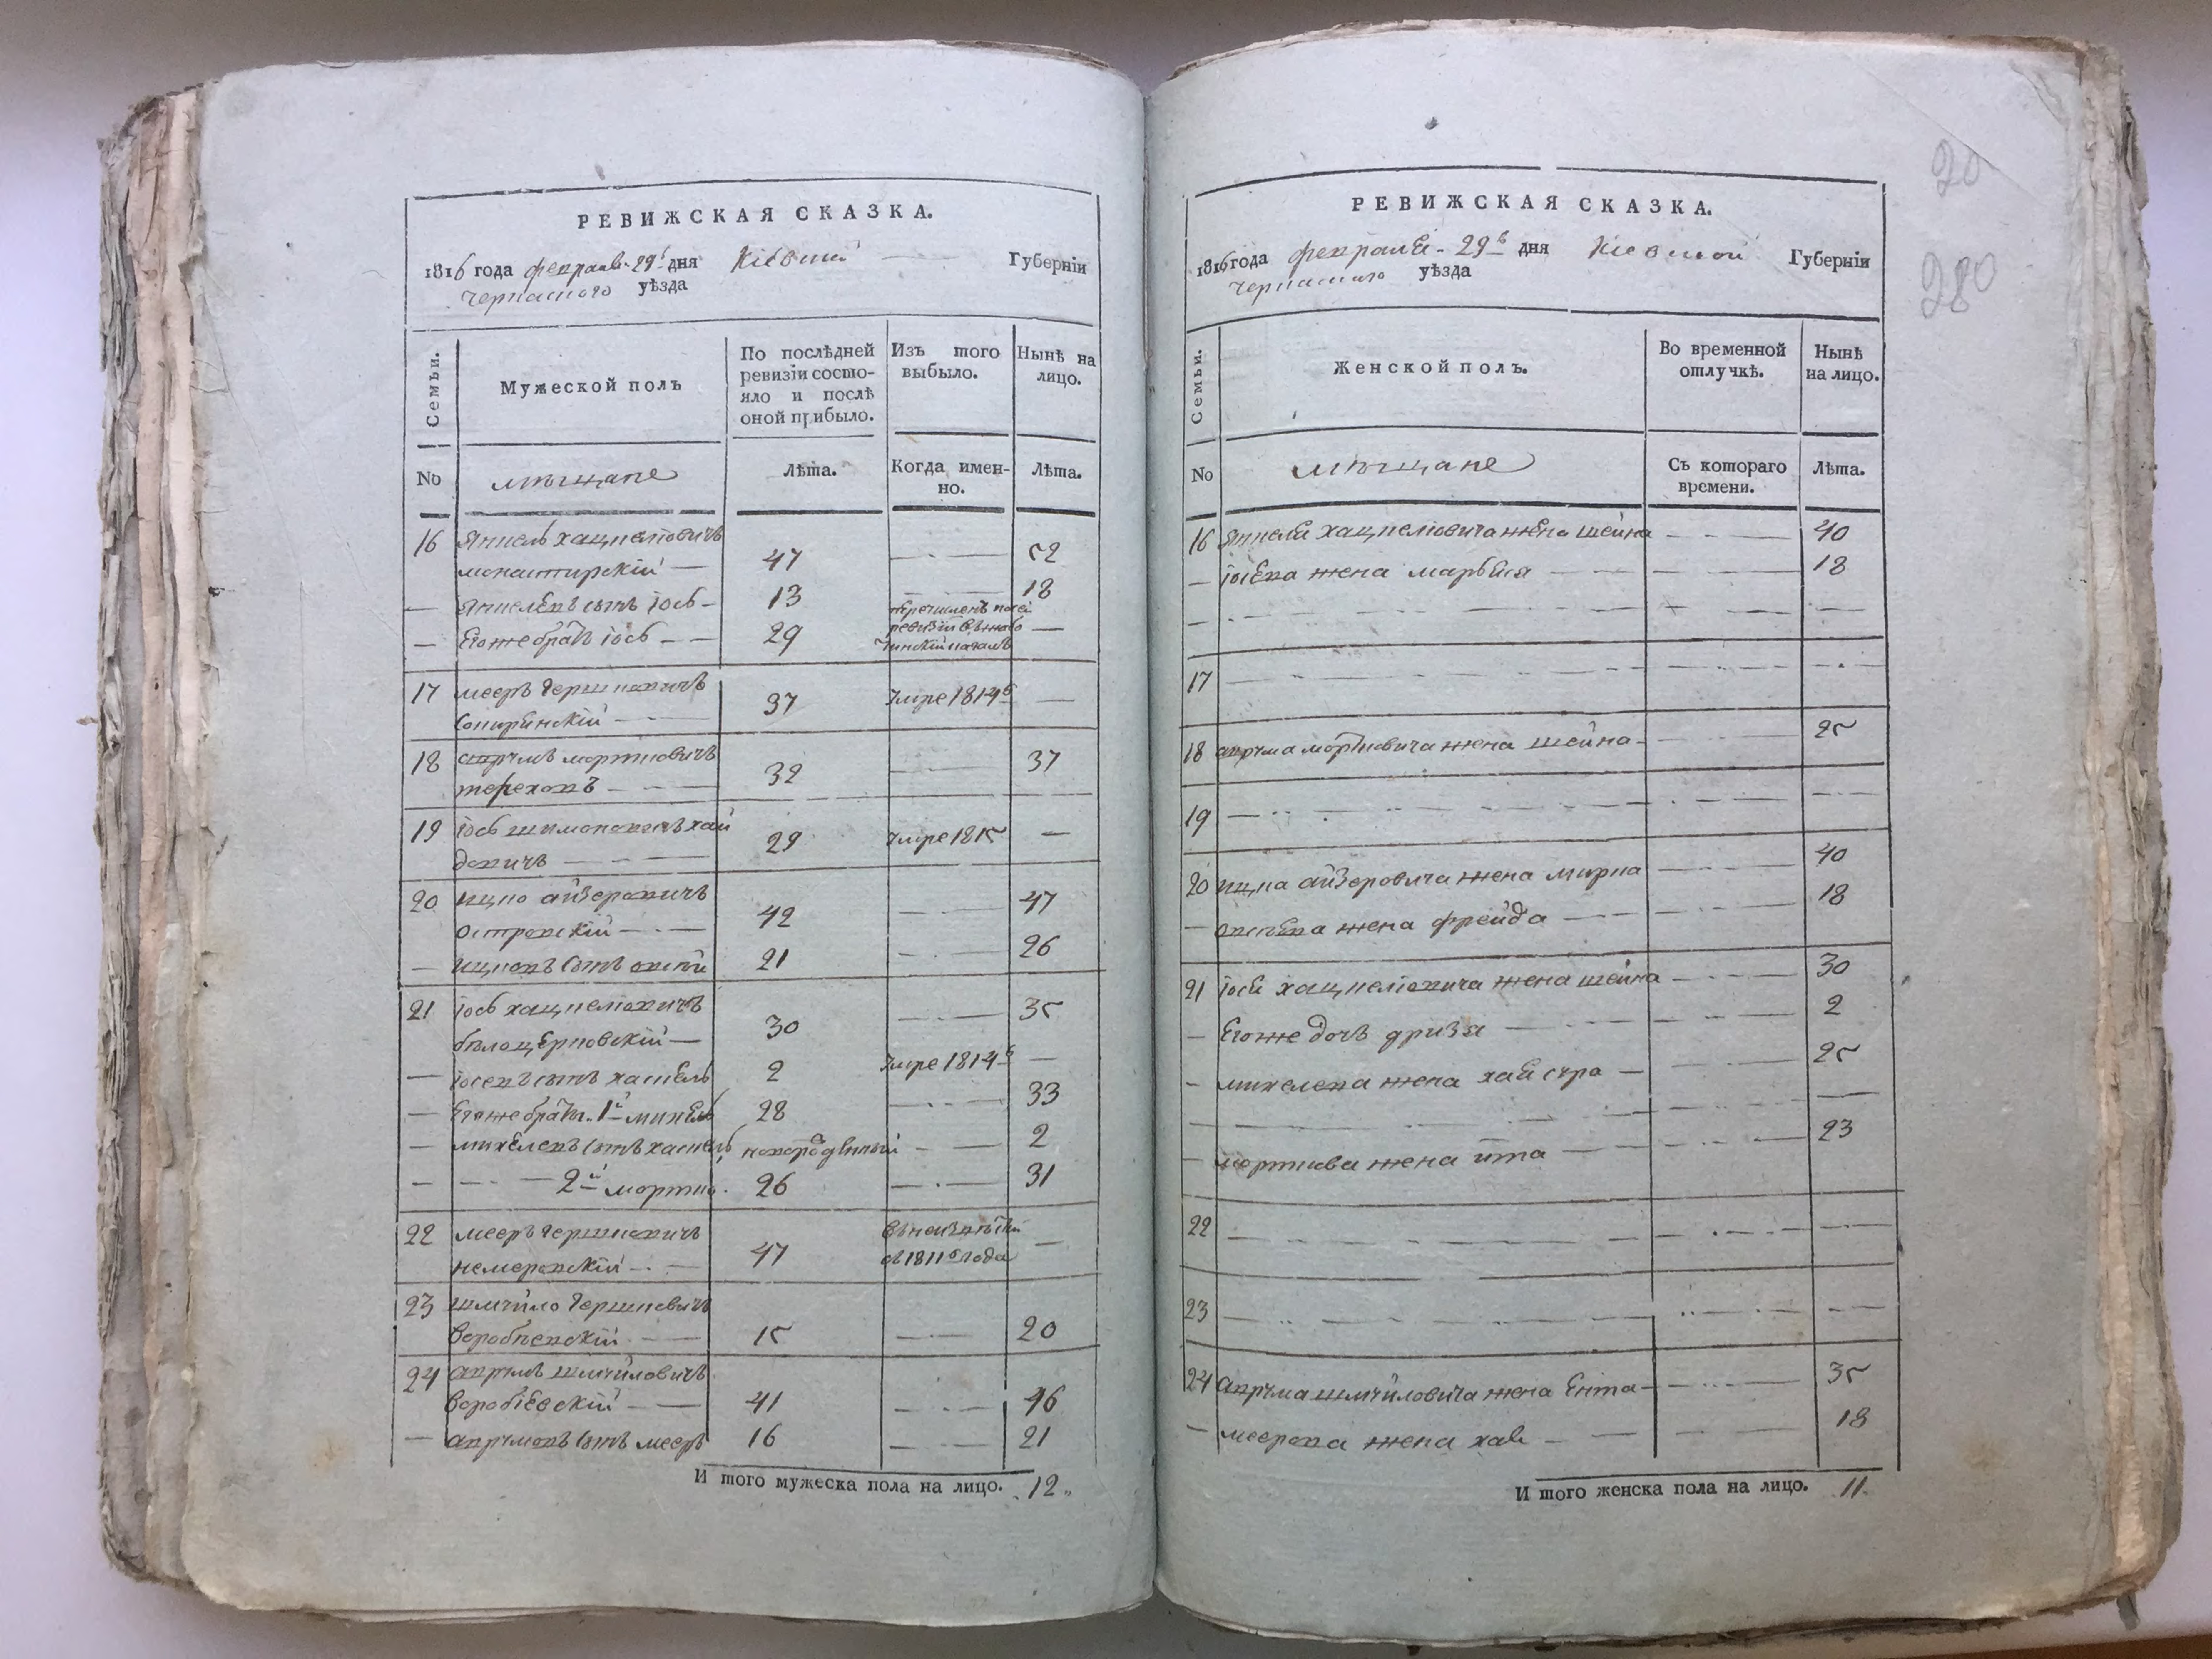 РЕВИЖСКАЯ СКАЗКА.
1816 года февраля 29 дня Кіевской Губерніи
Черкаского уѣзда
Семьи.
Мужеской полъ
По послѣдней
ревизіи состо-
яло и послѣ
оной прибыло.
Изъ того
выбыло.
Нынѣ на
лицо.
No
мѣщане
Лѣта.
Когда имен-
но.
Лѣта.
16 Янкель Хацкеліовичъ
монастирскій — 47 — 52
— Янкелевъ сынъ Іось — 13 — 18
— Его же братъ Іось — 29 перечисленъ —
17 Мееръ Гершковичъ
37 умре 1814 —
18 Аврумъ Мортковичъ
тереховъ — 32 — 37
19 Іось Шимоновичъ Хай
довичъ — 29 умре 1815 —
20 Ицко Айзеровичъ
островскій — 42 — 47
— Ицковъ сынъ 21 — 26
21 Іось Хацкеліовичъ
бѣлоцерковскій — 30 — 35
— Іосевъ сынъ Хаскель 2 умре 1814 —
— Его же братъ 1й Михель 28 — 33
— Михелевъ сынъ Хаскель новорожденный — 2
— — 2й Мортко 26 — 31
22 Мееръ Гершковичъ
немеровскій — 47
съ 1811 года —
23 Шмуйло Гершковичъ
воробіевскій — 15 — 20
24 Аврумъ Шмуйловичъ
воробіевскій — 41 — 46
— Аврумовъ сынъ Мееръ 16 — 21
И того мужеска пола на лицо. 12
20
280
РЕВИЖСКАЯ СКАЗКА.
1816 года февраля 29 дня Кіевской Губерніи
Черкаского уѣзда
Семьи.
Женской полъ.
Во временной
отлучкѣ.
Нынѣ
на лицо.
No
мѣщане
Съ котораго
времени.
Лѣта.
16 Янкеля Хацкеліовича жена Шейна — 40
— Іосева жена — 18
17
18 Аврума Мортковича жена Шейна — 25
19
20 Ицка Айзеровича жена Мирка — 40
— жена Фрейда — 18
21 Іося Хацкеліовича жена Шейна — 30
— Его же дочь Дризя — 2
— Михелева жена Хая Сура — 25
— Морткова жена Ита — 23
22
23
24 Аврума Шмуйловича жена Ента — 35
— Меерова жена Хая — 18
И того женска пола на лицо. 11.